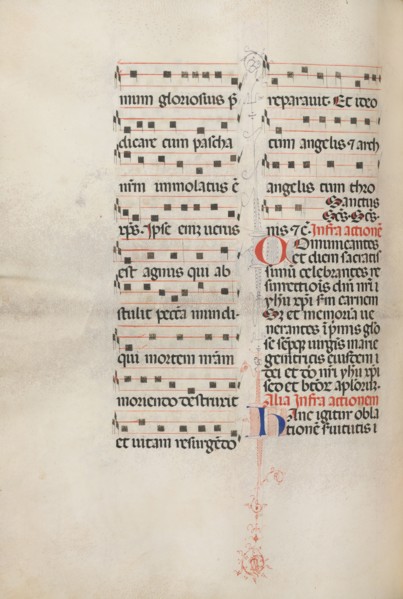 mum gloriosius p̄
dicare cum pascha
nr̄m immolatus ē
xp̄s. Ipse enī uerus
est agnus qui ab
stulit pecc̄a mundi·
qui mortem nr̄am
moriendo destruxit
et uitam resurgēdo
reparauit. Et ideo
cum angelis ⁊ arch
angelis cum thro
Sanctus
Sc̄s. Sc̄s.
nis ⁊ c̄. Infra actionē
Comunicantes
et diem sacratis
simū celebrantes re
surrectiōis dn̄i nr̄i
yhu xpi s̄m carnem
Sz et memoriā ue
nerantes ī pͥmis glo
se semp̱ uirgīs marie
genitricis eiusdem
dei et dn̄i nr̄i yhu xpi
sed et btōr apl̄oruꝝ.
Alia Infra actionem
Hanc igitur obla
tionē ẜuitutis